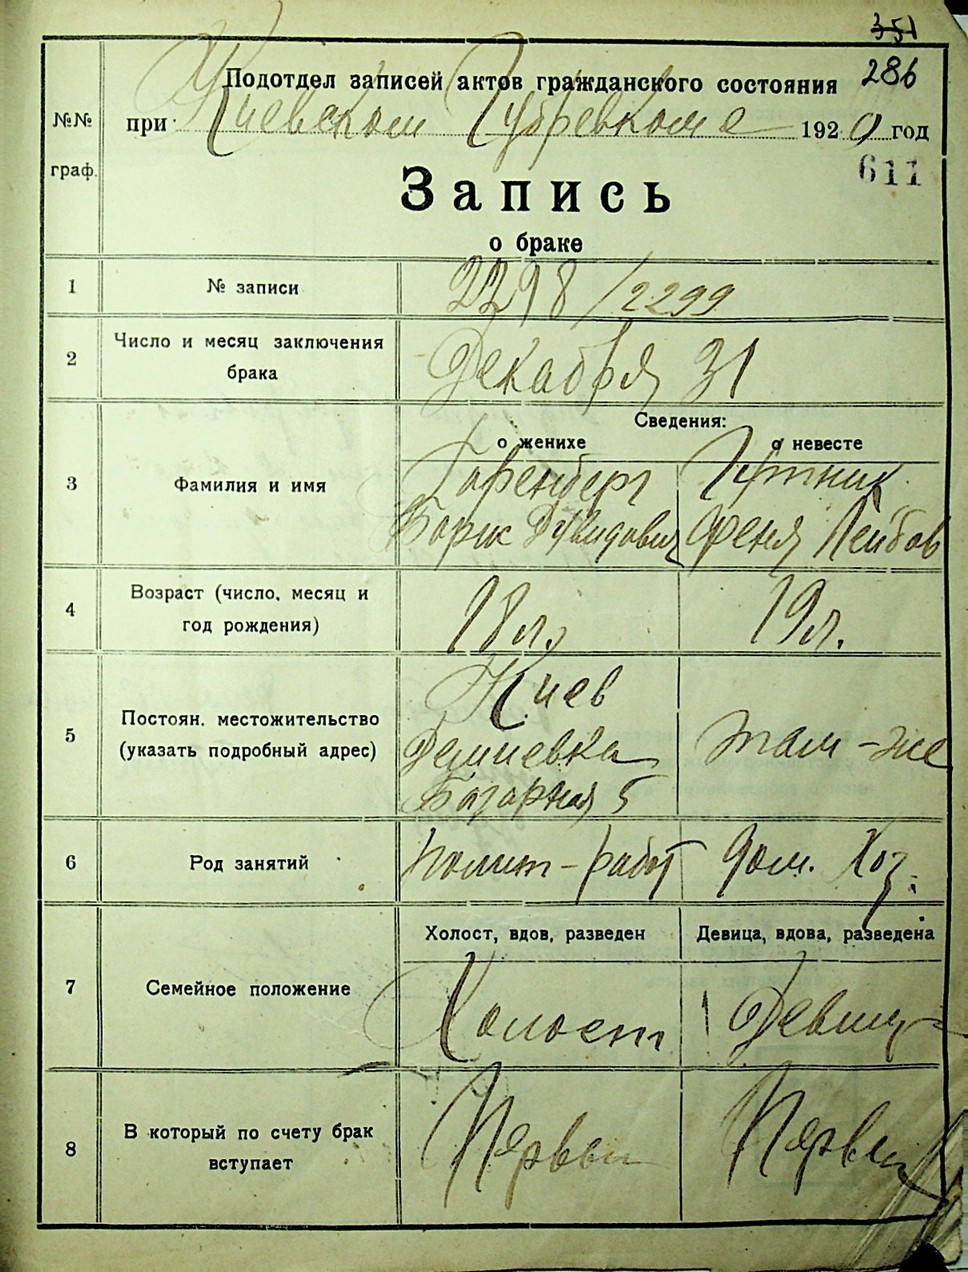 351
Подотдел записей актов гражданского состояния 286
№№ при Киевском Губревкоме 1920 год
граф. 611
Запись
о браке
1 № записи 2298/2299
2 Число и месяц заключения брака Декабря 31
Сведения:
о женихе о невесте
3 Фамилия и имя
Гутник
Борис Дувидович Феня Лейбов
4 Возраст (число, месяц и год рождения) 18 л. 19 л.
5 Постоян. местожительство (указать подробный адрес)
Киев
Демиевка там-же
Базарная 5
6 Род занятий Полит-работ Дом. Хоз.
Холост, вдов, разведен Девица, вдова, разведена
7 Семейное положение Холост Девица
8 В который по счету брак вступает Первый Первый